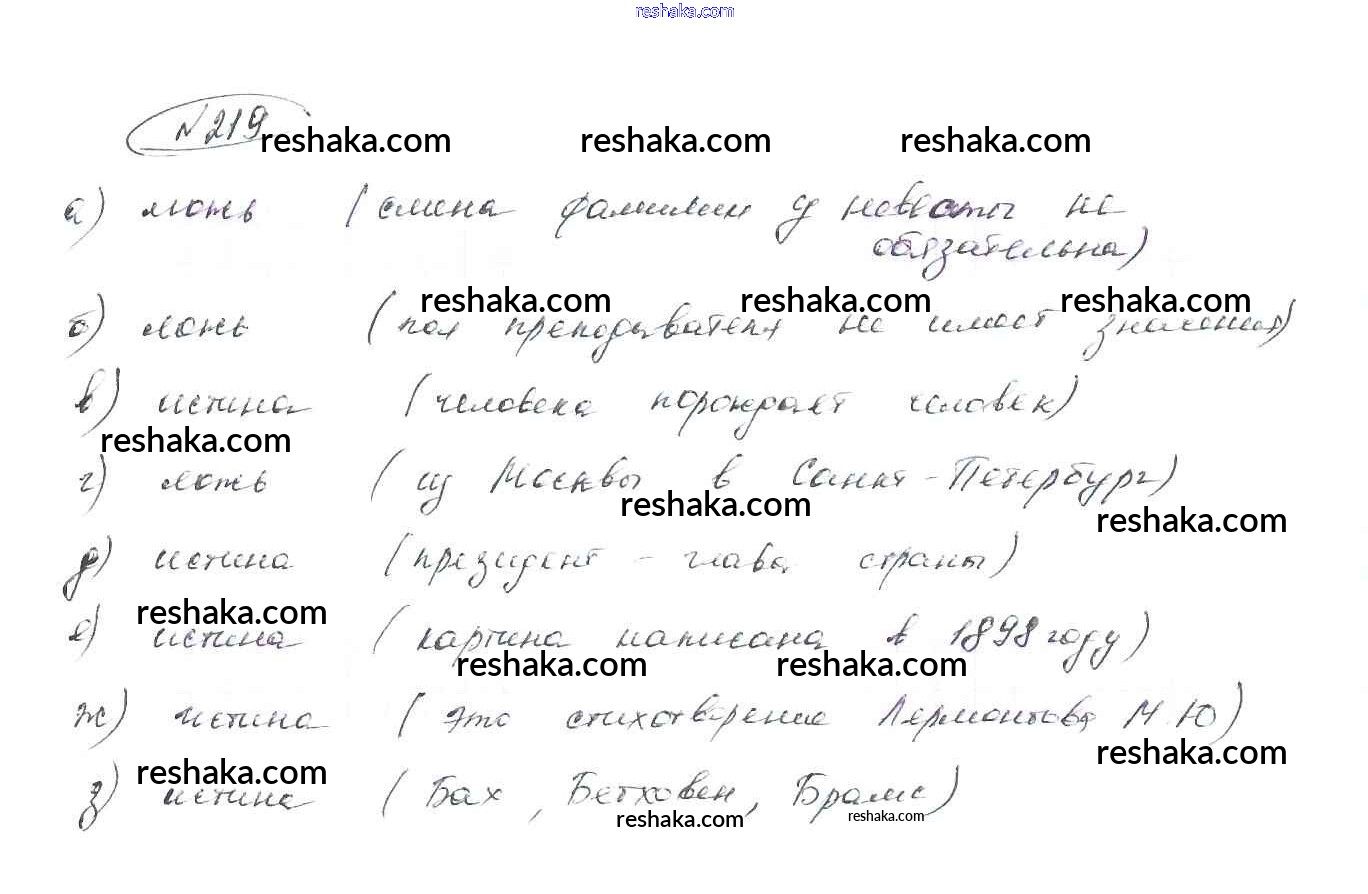 reshaka.com
№219
reshaka.com reshaka.com reshaka.com
а) ложь (смена фамилии у невесты не
обязательна)
reshaka.com reshaka.com reshaka.com
б) ложь (пол преподавателя не имеет значения)
в) истина (человека порождает человек)
reshaka.com
г) ложь (из Москвы в Санкт-Петербург)
reshaka.com reshaka.com
д) истина (президент - глава страны)
reshaka.com
е) истина (картина написана в 1898 году)
reshaka.com reshaka.com
ж) истина (это стихотворение Лермонтова М.Ю)
reshaka.com
reshaka.com
з) истина (Бах, Бетховен, Брамс)
reshaka.com reshaka.com